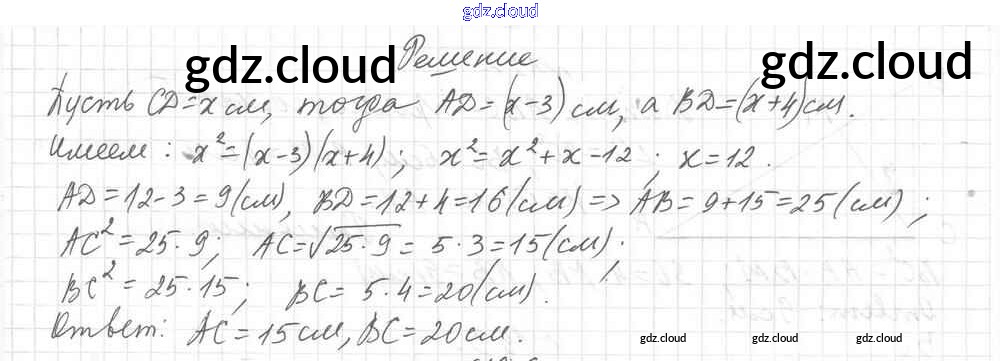 gdz.cloud
Решение
gdz.cloud gdz.cloud
Пусть CD=x см, тогда AD=(x-3) см, а BD=(x+4) см.
Имеем: x²=(x-3)(x+4); x²=x²+x-12; x=12.
AD=12-3=9(см), BD=12+4=16(см) => AB=9+15=25(см);
AC²=25·9; AC=√25·9=5·3=15(см);
BC²=25·15; BC=5·4=20(см).
Ответ: AC=15см, BC=20см.
gdz.cloud gdz.cloud gdz.cloud